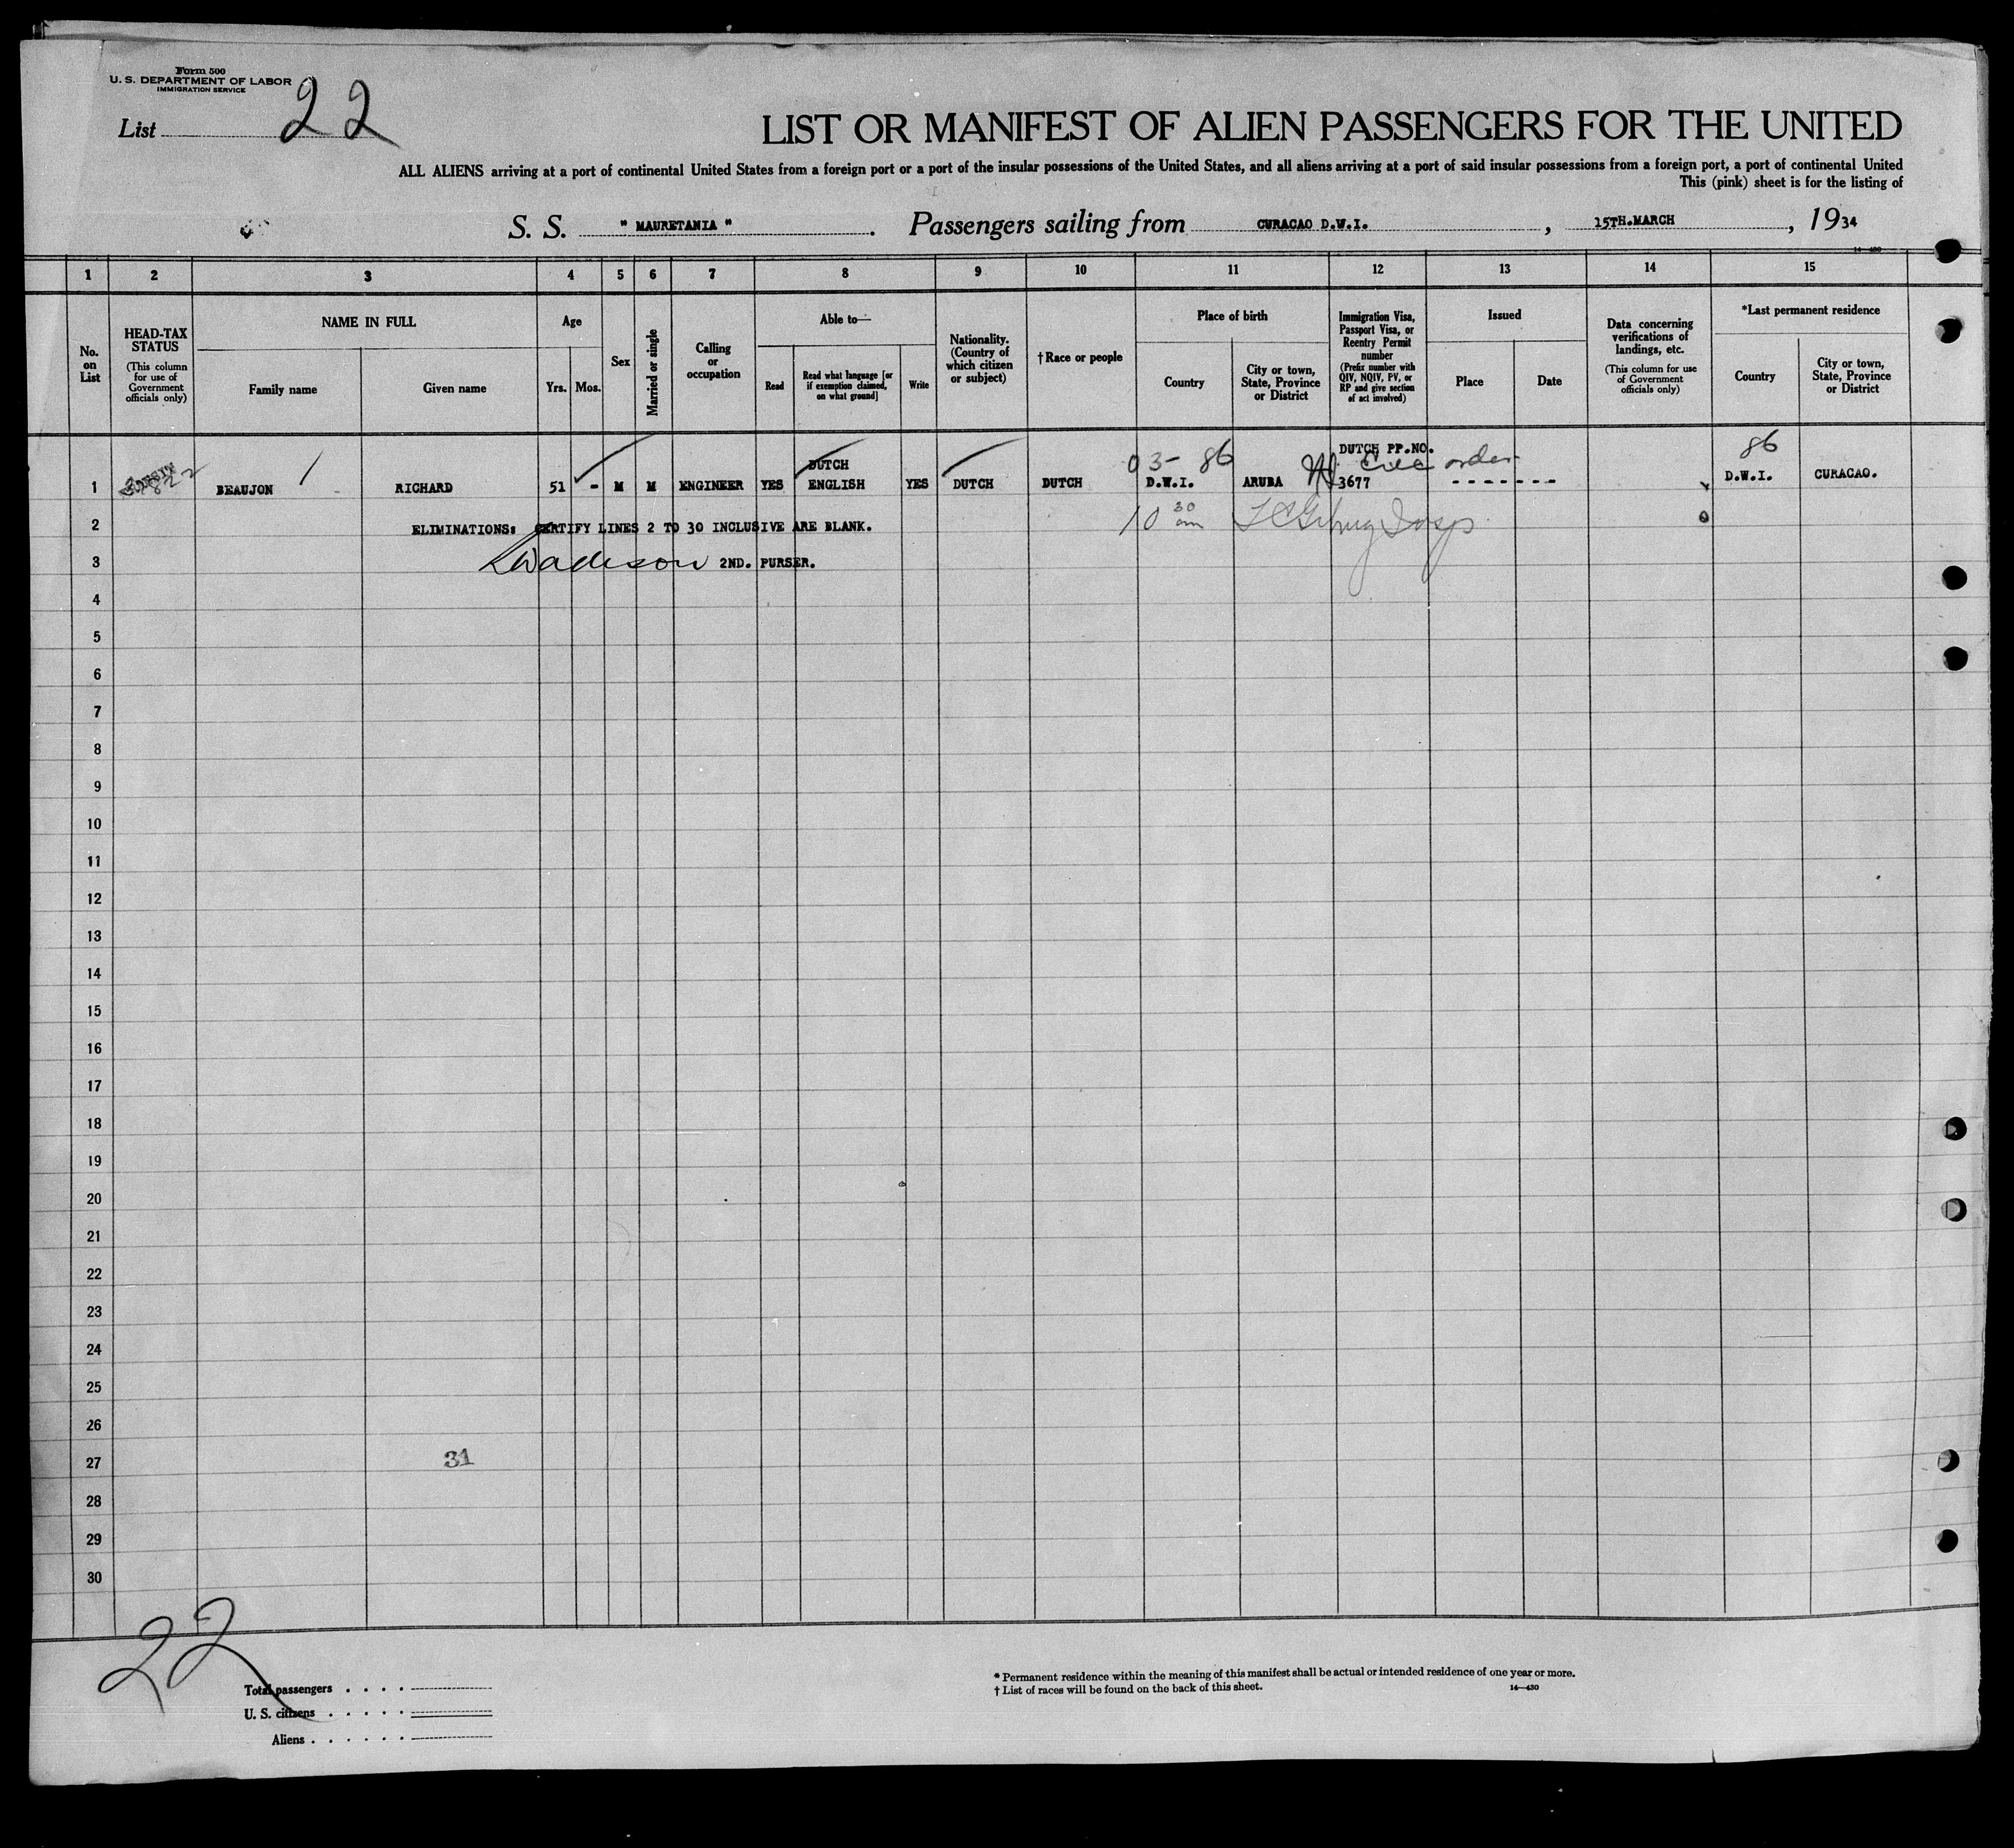 Form 500
U. S. DEPARTMENT OF LABOR
IMMIGRATION SERVICE
List 22
LIST OR MANIFEST OF ALIEN PASSENGERS FOR THE UNITED
ALL ALIENS arriving at a port of continental United States from a foreign port or a port of the insular possessions of the United States, and all aliens arriving at a port of said insular possessions from a foreign port, a port of continental United
This (pink) sheet is for the listing of
S. S. " MAURETANIA " . Passengers sailing from CURACAO D.W.I. , 15TH.MARCH , 1934
14—430
1 2 3 4 5 6 7 8 9 10 11 12 13 14 15
No. on List
HEAD-TAX STATUS
(This column for use of Government officials only)
NAME IN FULL
Family name
Given name
Age
Yrs. Mos.
Sex
Married or single
Calling or occupation
Able to—
Read
Read what language [or if exemption claimed, on what ground]
Write
Nationality. (Country of which citizen or subject)
†Race or people
Place of birth
Country
City or town, State, Province or District
Immigration Visa, Passport Visa, or Reentry Permit number
(Prefix number with QIV, NQIV, PV, or RP and give section of act involved)
Issued
Place
Date
Data concerning verifications of landings, etc.
(This column for use of Government officials only)
*Last permanent residence
Country
City or town, State, Province or District
DUTCH 03- 86 DUTCH PP.NO. order 86
1 BEAUJON RICHARD 51 - M M ENGINEER YES ENGLISH YES DUTCH DUTCH D.W.I. ARUBA 3677 ------- D.W.I. CURACAO.
2 ELIMINATIONS: CERTIFY LINES 2 TO 30 INCLUSIVE ARE BLANK. 10 30 am Insp
3 2ND. PURSER.
4
5
6
7
8
9
10
11
12
13
14
15
16
17
18
19
20
21
22
23
24
25
26
27 31
28
29
30
22
Total passengers . . . .
U. S. citizens . . . . .
Aliens . . . . . .
* Permanent residence within the meaning of this manifest shall be actual or intended residence of one year or more.
† List of races will be found on the back of this sheet. 14—430